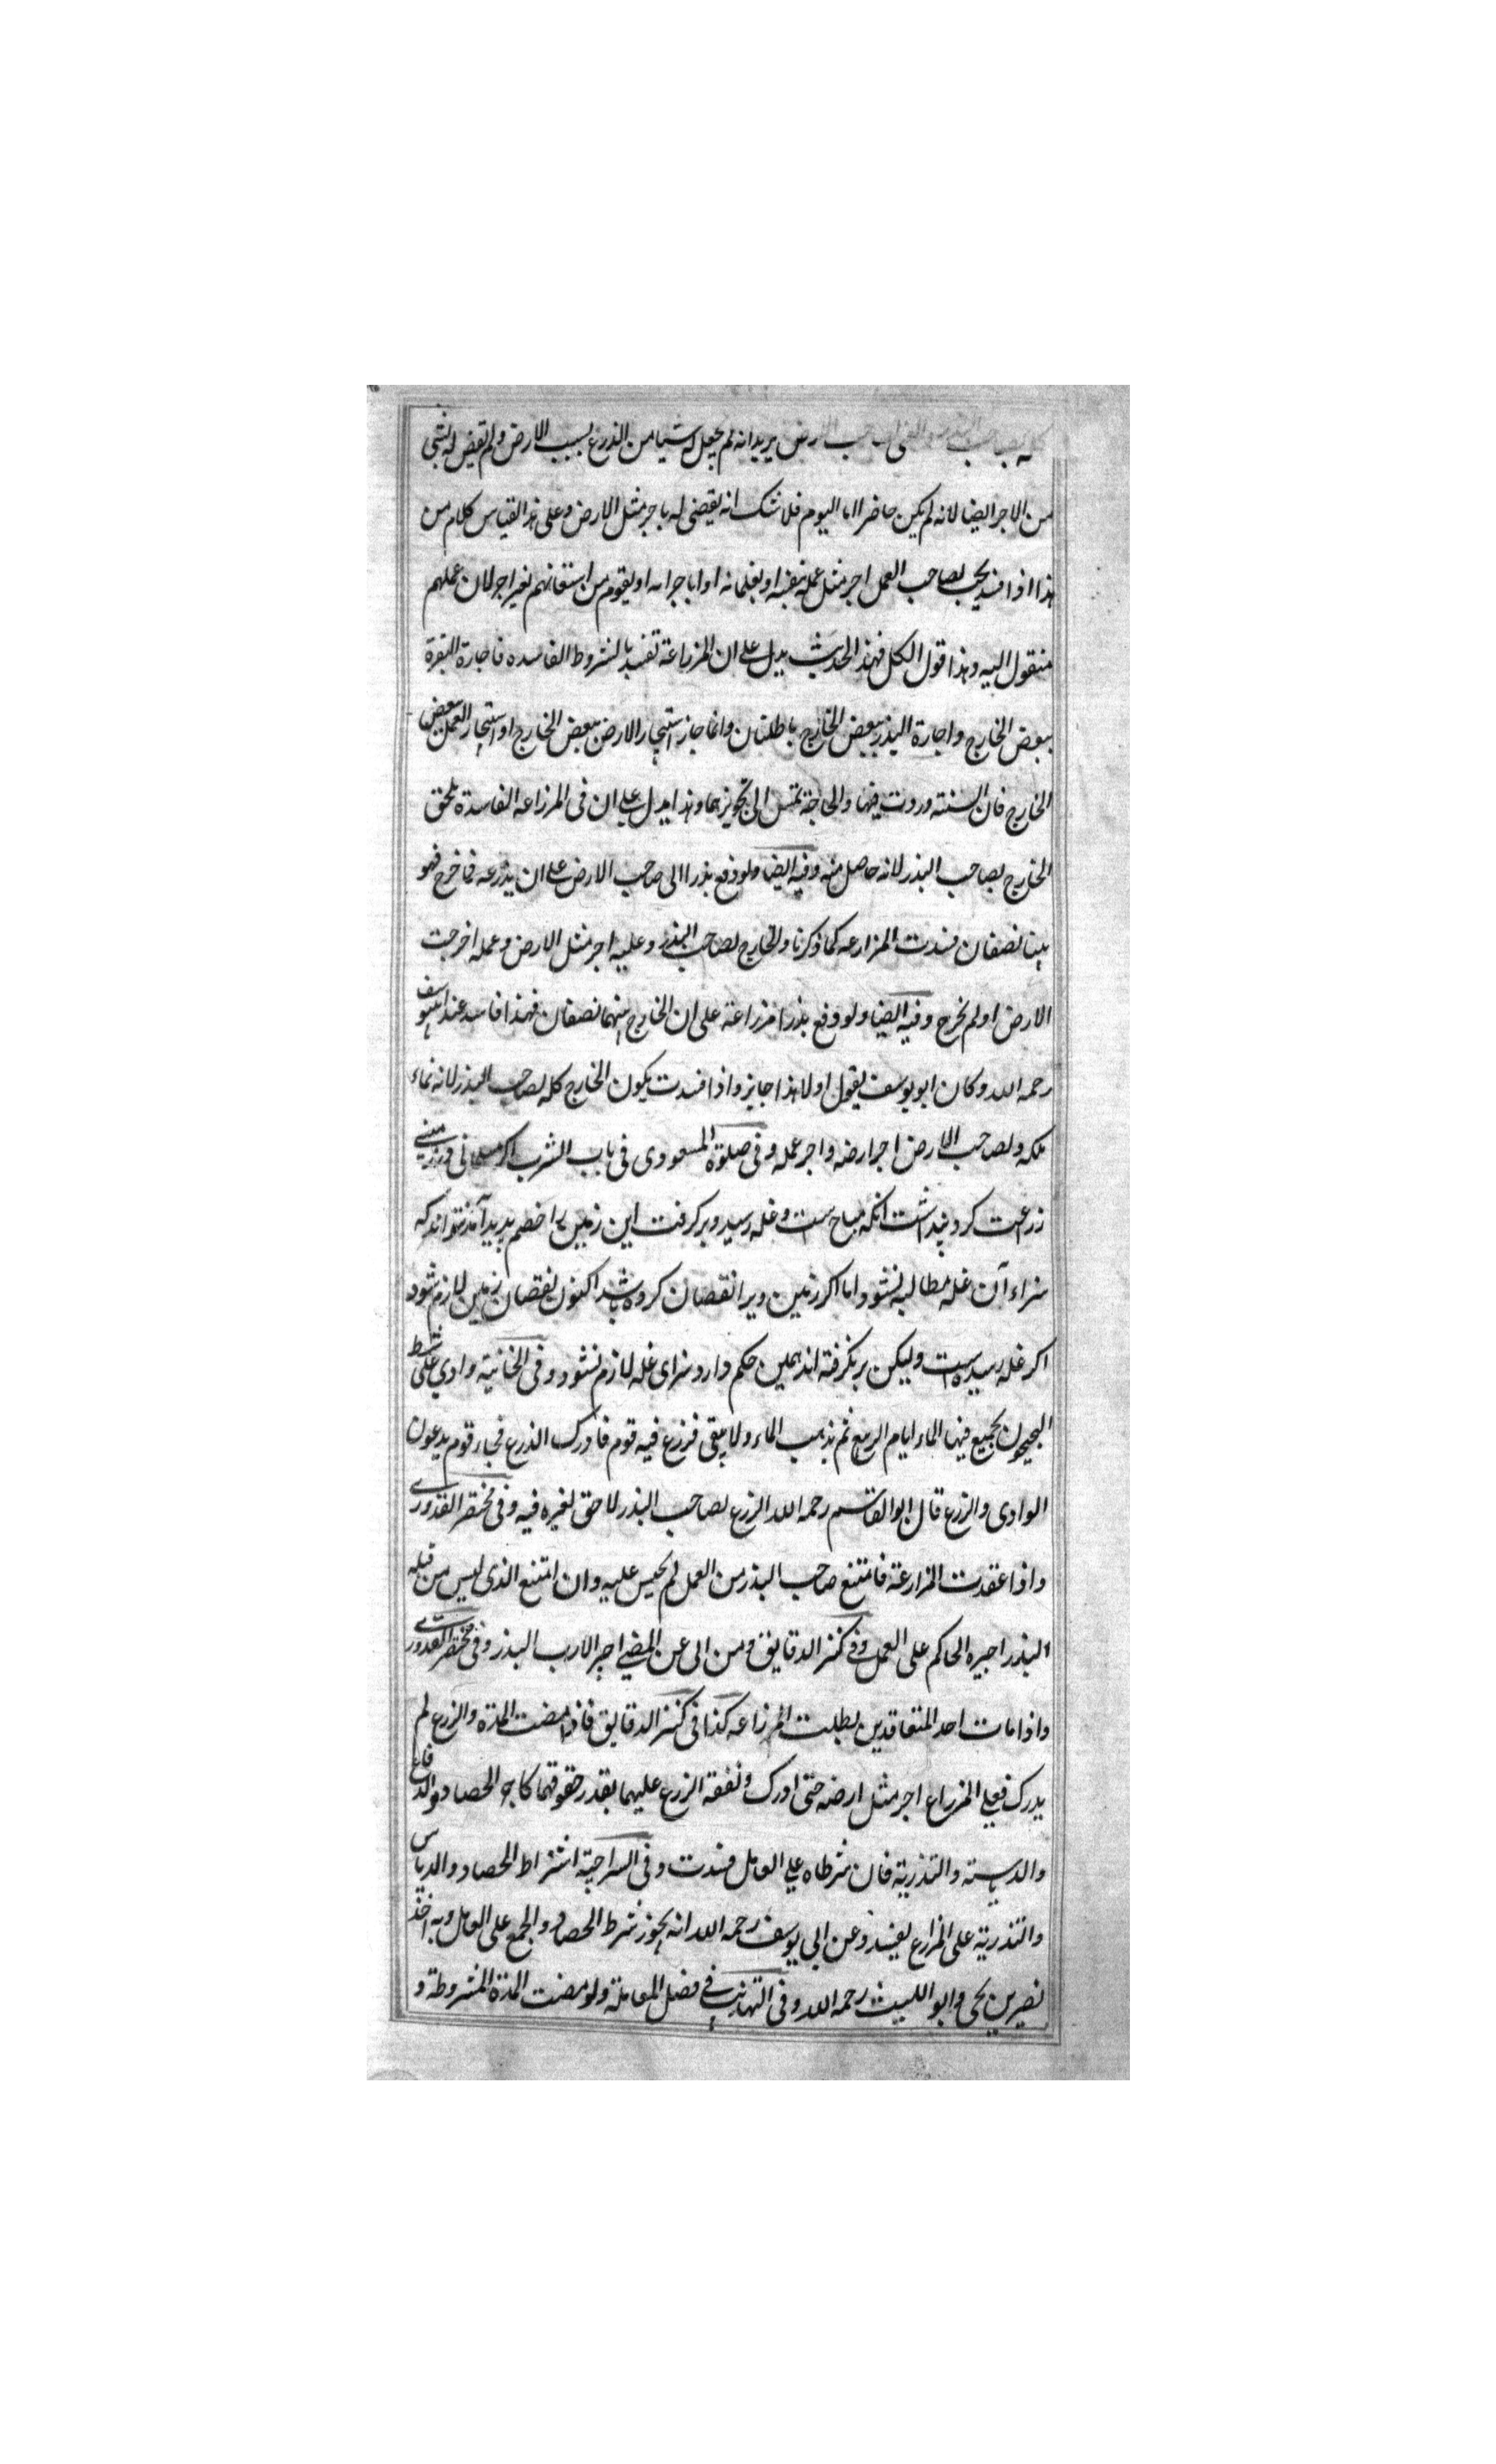 كله لصاحب البذر والغى صاحب الارض يريد انه لم يجعل له شيا من الذرع بسبب الارض ولم يقض له بشئ
من الاجر ايضا لانه لم يكن حاضرا اما اليوم فلا شك انه يقضى له باجر مثل الارض وعلى هذا القياس كلام من
هذا اذا فسد يجب لصاحب العمل اجر مثل عمله بنفسه او بغلمانه او باجرائه او بقوم من استعانهم بغير اجر لان عملهم
منقول اليه وهذا قول الكل فهذ الحديث يدل على ان المزراعة تفسد بالشروط الفاسده فاجارة البقرة
ببعض الخارج واجارة البذر ببعض الخارج باطلتان وانما جاز استيجار الارض ببعض الخارج او استيجار العمل ببعض
الخارج فان السنته وردت فيها والحاجة تمس الى تجويزهما وهذا يدل على ان فى المزراعه الفاسدة يلحق
الخارج لصاحب البذر لانه حاصل منه وفيه ايضا ولو دفع بذرا الى صاحب الارض على ان يذرعه فما خرج فهو
بيننا نصفان فسدت المزارعه كما ذكرنا والخارج لصاحب البذر وعليه اجر مثل الارض وعمله اخرجت
الارض او لم تخرج وفيه ايضا ولو دفع بذرا مزراعة على ان الخارج بينهما نصفان فهذا فاسد عند ابى يوسف
رحمه الله وكان ابو يوسف يقول اولا هذا جايز واذا فسدت يكون الخارج كله لصاحب البذر لانه نماء
ملكه ولصاحب الارض اجر ارضه واجر عمله وفى صلوة المسعودى فى باب الشرب اكر مسلمانى در زمينى
زراعت كرد پنداشت انكه مباح است وغله رسيد وبر كرفت اين زمين را خصم پديد آمد نتواند كه
سزاء آن غله مطالبه نشود اما اكر زمين ويرا نقصان كرده باشد اكنون نقصان زمين لازم شود
اكر غله رسيده است وليكن بر نكرفته اند همين حكم دارد سزاى غله لازم نشود وفى الخانية وادي على شط
الجيحون يجميع فيها الماء ايام الربيع ثم يذهب الماء ولا يبقى فزرع فيه قوم فادرك الذرع فجاء قوم يدعون
الوادى والزرع قال ابو القاسم رحمه الله الزرع لصاحب البذر لا حق لغيره فيه وفى مختصر القدورى
واذا عقدت المزارعة فامتنع صاحب البذر من العمل لم يجبر عليه وان امتنع الذى ليس من قبله
البذر اجبره الحاكم على العمل وفى كنز الدقايق ومن ابى عن المضى اجبر الا رب البذر وفى مختصر القدورى
واذا مات احد المتعاقدين بطلت المزراعه كذا فى كنز الدقايق فاذا مضت المدة والزرع لم
يدرك فعلى المزراع اجر مثل ارضه حتى ادرك ونفقه الزرع عليهما بقدر حقوقهما كاجر الحصاد والدفاع
والدياسته والتذرية فان شرطاه على العامل فسدت وفى السراجية اشتراط الحصاد والدياس
والتذرية على المزارع يفسد وعن ابي يوسف رحمه الله انه يجوز شرط الحصاد والجمع على العامل وبه اخذ
نصير بن يحى وابو الليث رحمه الله وفى التهذيب فى فصل المعاملة ولو مضت المدة المشروطة و